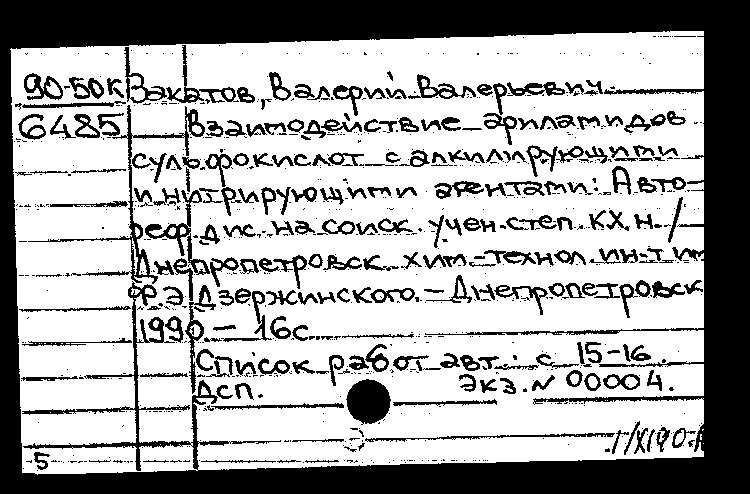 90-50к Закатов, Валерий Валерьевич.
6485 Взаимодействие ариламидов
сульфокислот с алкилирующими
и нитрирующими агентами: Авто-
реф. дис. на соиск. учен. степ. к.х.н. /
Днепропетровск. хим.-технол. ин-т им.
Ф.Э. Дзержинского. – Днепропетровск
1990. – 16с
Список работ авт.: с 15-16.
Дсп. Экз. N 00004.
5